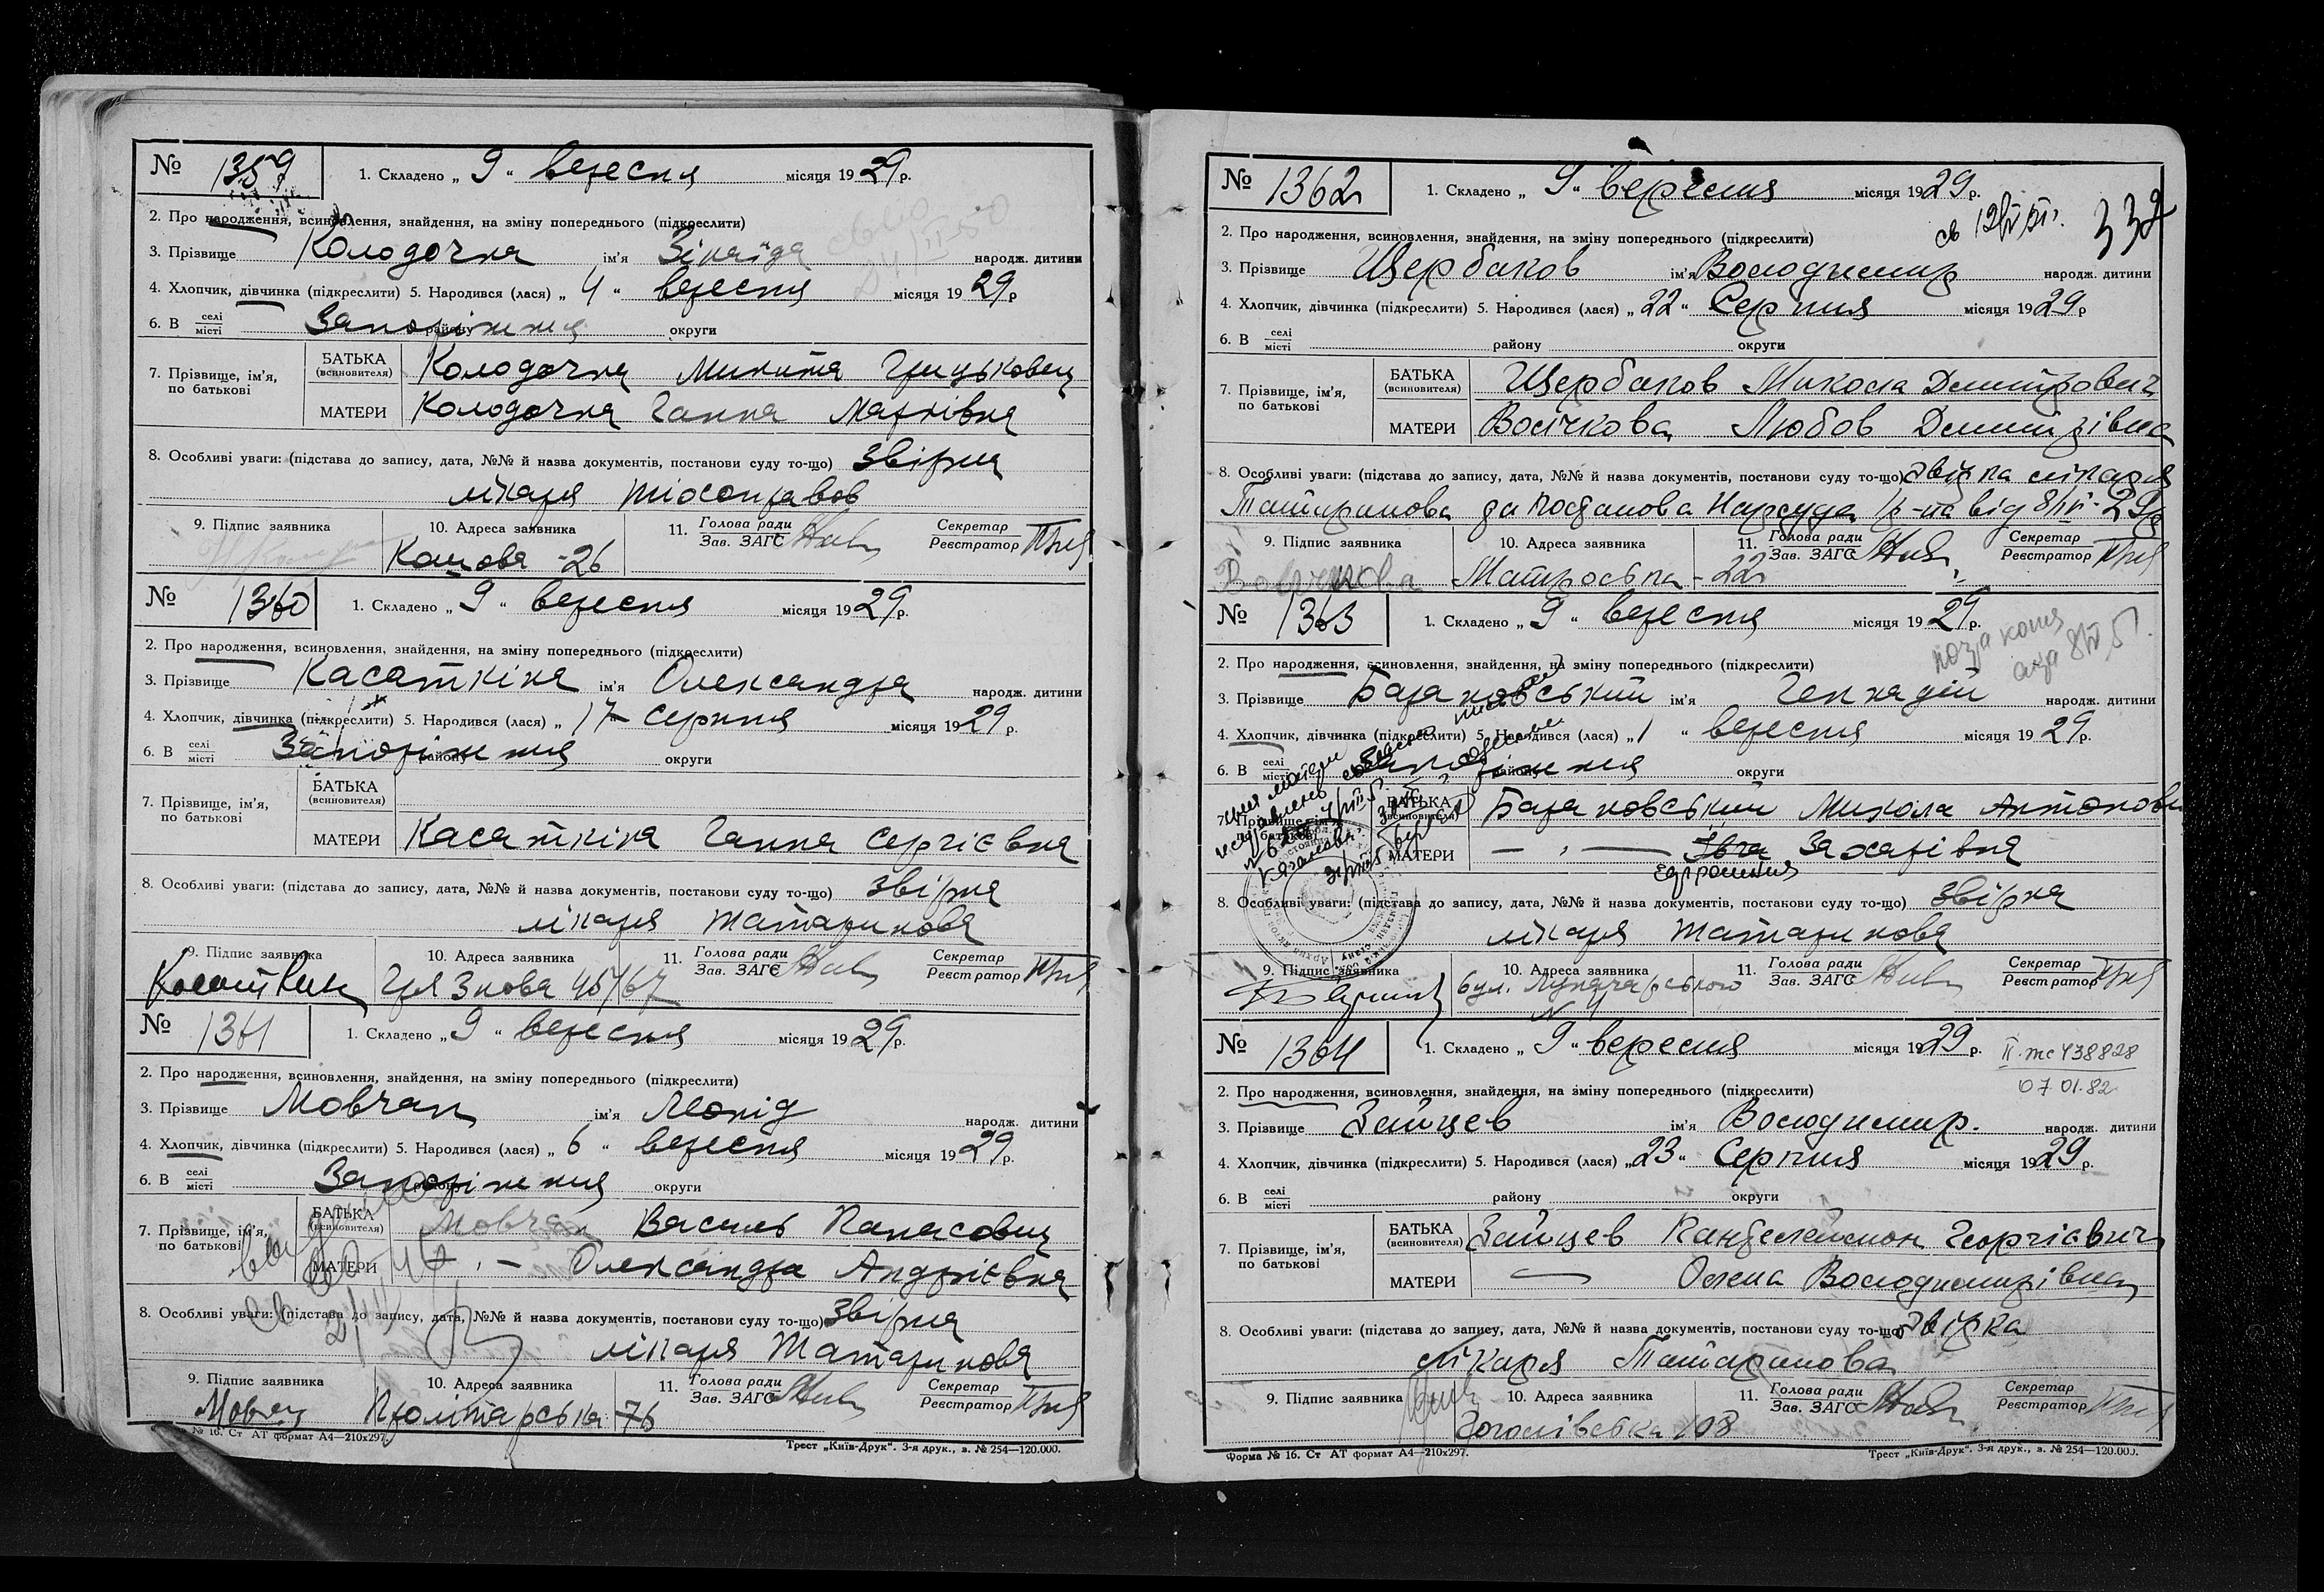 № 1359 1. Складено „ 9 “ вересня місяця 1929 р.
2. Про народження, всиновлення, знайдення, на зміну попереднього (підкреслити)
3. Прізвище Колодочка ім'я Зінаїда народж. дитини
4. Хлопчик, дівчинка (підкреслити) 5. Народився (лася) „ 4 “ вересня місяця 1929 р
6. В селі місті Запоріжжя району округи
7. Прізвище, ім'я, по батькові
БАТЬКА (всиновителя) Колодочка Микита Грицькович
МАТЕРИ Колодочка Ганна Марківна
8. Особливі уваги: (підстава до запису, дата, №№ й назва документів, постанови суду то-що) Звірка
лікаря
9. Підпис заявника 10. Адреса заявника 11. Голова ради Зав. ЗАГС Секретар Реєстратор
Кошова - 26
№ 1360 1. Складено „ 9 “ вересня місяця 1929 р.
2. Про народження, всиновлення, знайдення, на зміну попереднього (підкреслити)
3. Прізвище Касаткіна ім'я Олександра народж. дитини
4. Хлопчик, дівчинка (підкреслити) 5. Народився (лася) „ 17 серпня місяця 1929 р.
6. В селі місті Запоріжжя району округи
7. Прізвище, ім'я, по батькові
БАТЬКА (всиновителя)
МАТЕРИ Касаткіна Ганна Сергієвна
8. Особливі уваги: (підстава до запису, дата, №№ й назва документів, постанови суду то-що) звірка
лікаря Татаринова
9. Підпис заявника 10. Адреса заявника 11. Голова ради Зав. ЗАГС Секретар Реєстратор
Грязнова 45/67
№ 1361 1. Складено „ 9 “ вересня місяця 1929 р.
2. Про народження, всиновлення, знайдення, на зміну попереднього (підкреслити)
3. Прізвище Мовчан ім'я Леонід народж. дитини
4. Хлопчик, дівчинка (підкреслити) 5. Народився (лася) „ 6 “ вересня місяця 1929 р.
6. В селі місті Запоріжжя району округи
7. Прізвище, ім'я, по батькові
БАТЬКА (всиновителя) Мовчан Василь Панасович
МАТЕРИ — " — Олександра Андрієвна
8. Особливі уваги: (підстава до запису, дата, №№ й назва документів, постанови суду то-що) Звірка
лікаря Татаринова
9. Підпис заявника 10. Адреса заявника 11. Голова ради Зав. ЗАГС Секретар Реєстратор
Мовчан Пролітарська 76
№ 16. Ст АТ формат А4—210х297. Трест „Київ-Друк“. 3-я друк., з. № 254—120.000.
332
№ 1362 1. Складено „ 9 “ вересня місяця 1929 р.
2. Про народження, всиновлення, знайдення, на зміну попереднього (підкреслити)
3. Прізвище Щербаков ім'я Володимир народж. дитини
4. Хлопчик, дівчинка (підкреслити) 5. Народився (лася) „ 22 “ Серпня місяця 1929 р
6. В селі місті району округи
7. Прізвище, ім'я, по батькові
БАТЬКА (всиновителя) Щербаков Микола Дмитрович
МАТЕРИ Восічкова Любов Дмитрівна
8. Особливі уваги: (підстава до запису, дата, №№ й назва документів, постанови суду то-що) звірка лікаря
Татаринова да постанова Нарсуда
9. Підпис заявника 10. Адреса заявника 11. Голова ради Зав. ЗАГС Секретар Реєстратор
Матроська - 22
№ 1363 1. Складено „ 9 “ вересня місяця 1929 р.
2. Про народження, всиновлення, знайдення, на зміну попереднього (підкреслити)
3. Прізвище Барановський ім'я Геннадій народж. дитини
4. Хлопчик, дівчинка (підкреслити) 5. Народився (лася) „ 1 “ вересня місяця 1929 р.
6. В селі місті Запоріжжя району округи
7. Прізвище, ім'я, по батькові
БАТЬКА (всиновителя) Барановський Микола Антонович
МАТЕРИ — " — Захарівна
8. Особливі уваги: (підстава до запису, дата, №№ й назва документів, постанови суду то-що) звірка
лікаря Татаринова
9. Підпис заявника 10. Адреса заявника 11. Голова ради Зав. ЗАГС Секретар Реєстратор
бул. Луначарського
№ 1364 1. Складено „ 9 “ вересня місяця 1929 р.
II. жс 438828
07.01.82
2. Про народження, всиновлення, знайдення, на зміну попереднього (підкреслити)
3. Прізвище Зайцев ім'я Володимир. народж. дитини
4. Хлопчик, дівчинка (підкреслити) 5. Народився (лася) „ 23 “ Серпня місяця 1929 р.
6. В селі місті району округи
7. Прізвище, ім'я, по батькові
БАТЬКА (всиновителя) Зайцев Кантелеймон Георгієвич
МАТЕРИ — Олена Володимирівна
8. Особливі уваги: (підстава до запису, дата, №№ й назва документів, постанови суду то-що) звірка
лікаря Татаринова
9. Підпис заявника 10. Адреса заявника 11. Голова ради Зав. ЗАГС Секретар Реєстратор
Гоголівська 108
Форма № 16. Ст АТ формат А4—210х297. Трест „Київ-Друк“. 3-я друк., з. № 254—120.000.